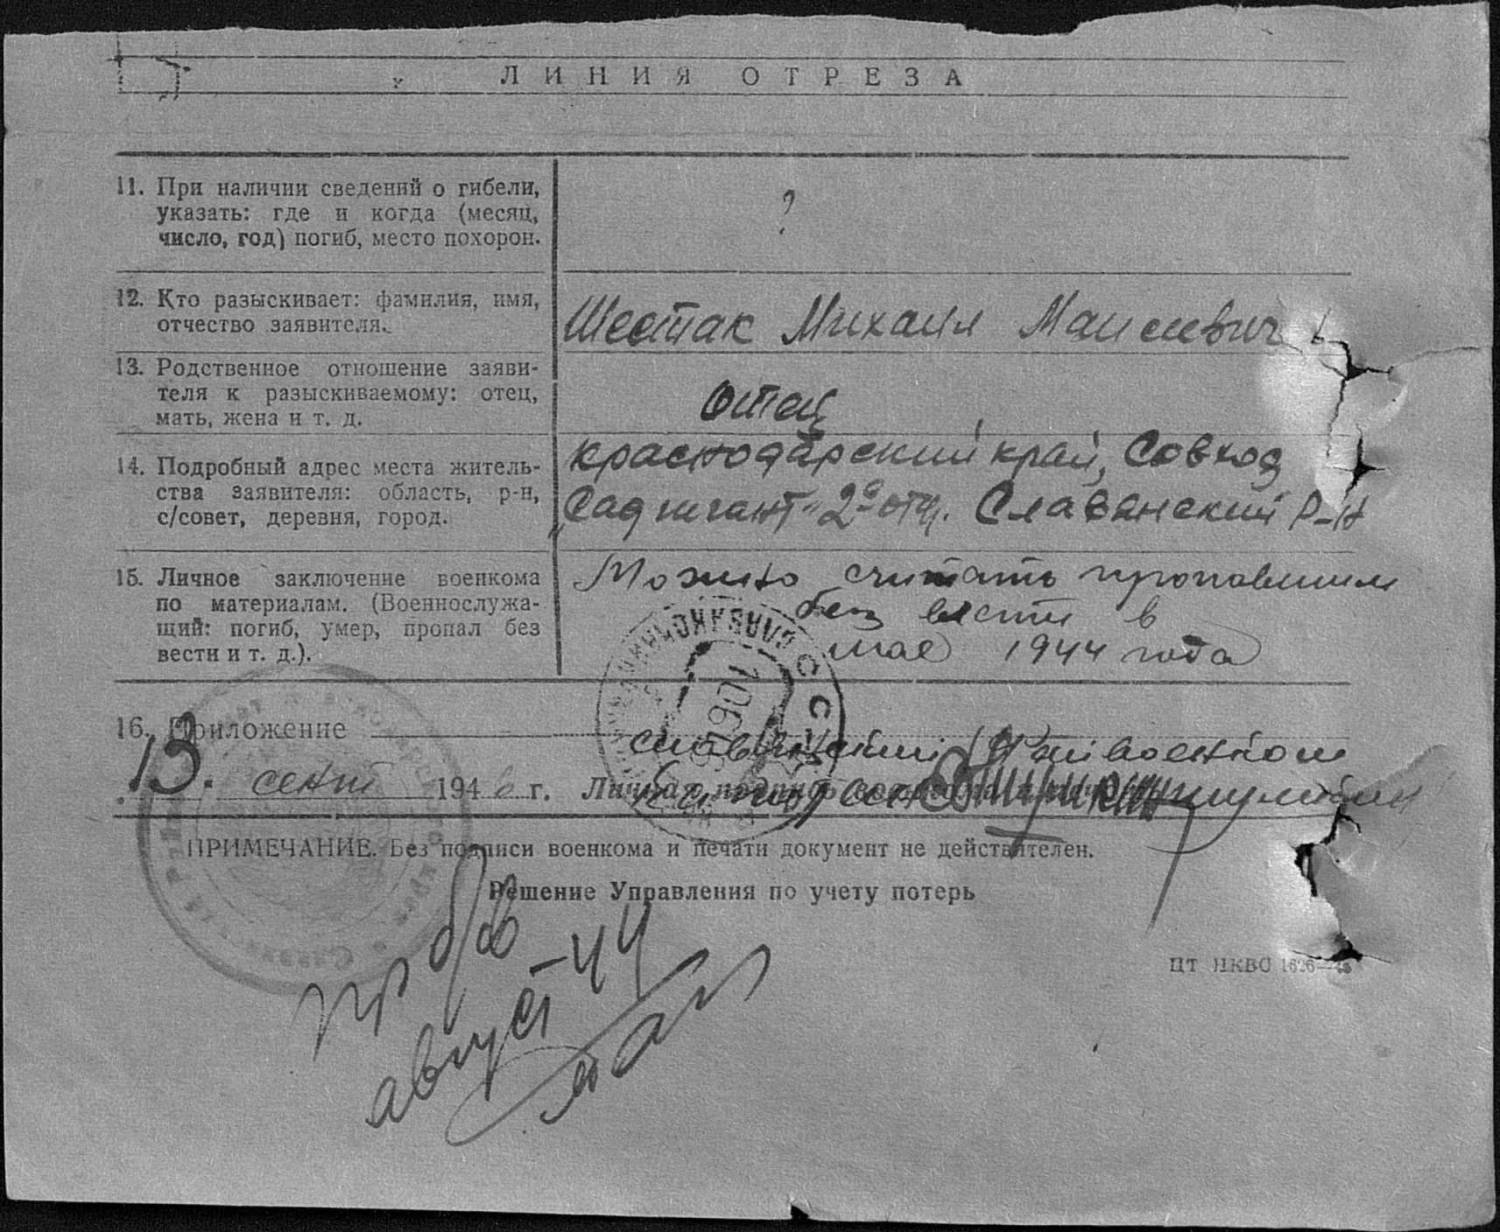 ЛИНИЯ ОТРЕЗА
11. При наличии сведений о гибели,
указать: где и когда (месяц,
число, год) погиб, место похорон.
?
12. Кто разыскивает: фамилия, имя,
отчество заявителя.
Шестак Михаил Моисеевич
13. Родственное отношение заяви-
теля к разыскиваемому: отец,
мать, жена и т. д.
Отец
14. Подробный адрес места житель-
ства заявителя: область, р-н,
с/совет, деревня, город.
Краснодарский край, Совхоз
„Сад гигант" 2е отд. Славянский р-н
15. Личное заключение военкома
по материалам. (Военнослужа-
щий: погиб, умер, пропал без
вести и т. д.).
Можно считать пропавшим
без вести в
мае 1944 года
16. Приложение
Славянский Райвоенком
13. сент 1946 г. Личная подпись
ПРИМЕЧАНИЕ. Без подписи военкома и печати документ не действителен.
Решение Управления по учету потерь
пр б/в
август-44
ЦТ НКВС 1626—